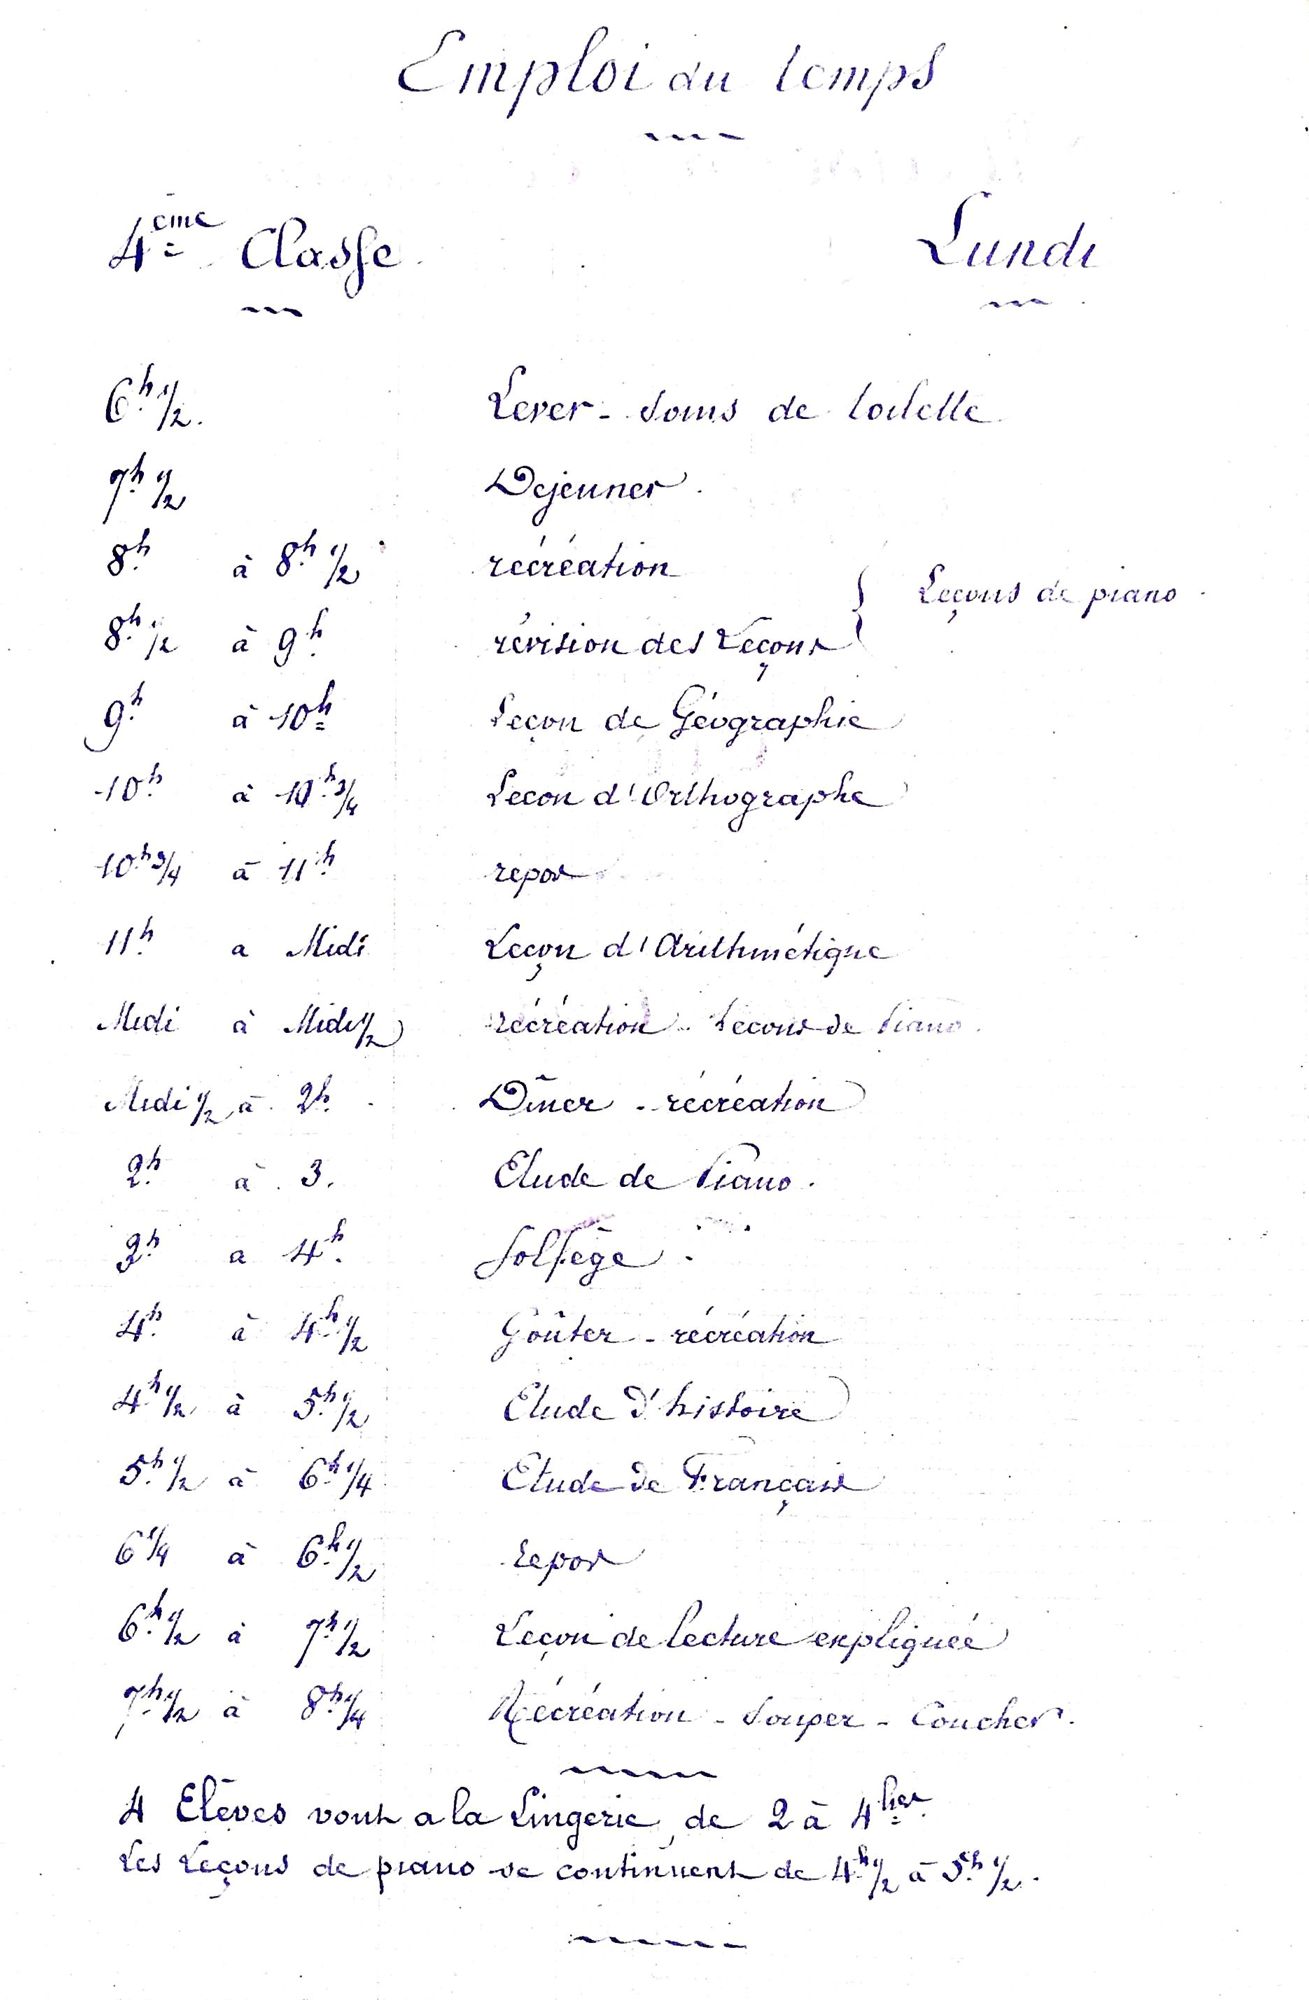 Emploi du temps
4ème Classe
Lundi
6h 1/2. Lever - Soins de toilette
7h 1/2 Dejeuner.
8h à 8h 1/2 récréation
Leçons de piano
8h 1/2 à 9h révision des Leçons
9h à 10h Leçon de Géographie
10h à 10h 3/4 Lecon d'Orthographe
10h 3/4 à 11h repos
11h a Midi Leçon d'Arithmétique
Midi à Midi 1/2 récréation - Lecons de Piano.
Midi 1/2 à 2h. Dîner - récréation
2h à 3. Etude de Piano.
3h a 4h. Solfège.
4h à 4h 1/2 Goûter - récréation
4h 1/2 à 5h 1/2 Etude d'histoire
5h 1/2 à 6h 1/4 Etude de Français
6 1/4 à 6h 1/2 repos
6h 1/2 à 7h 1/2 Leçon de lecture expliquée
7h 1/2 à 8h 1/4 Récréation - Souper - Coucher.
4 Elèves vont a la Lingerie, de 2 à 4 hes
Les Leçons de piano se continuent de 4h 1/2 à 5h 1/2.